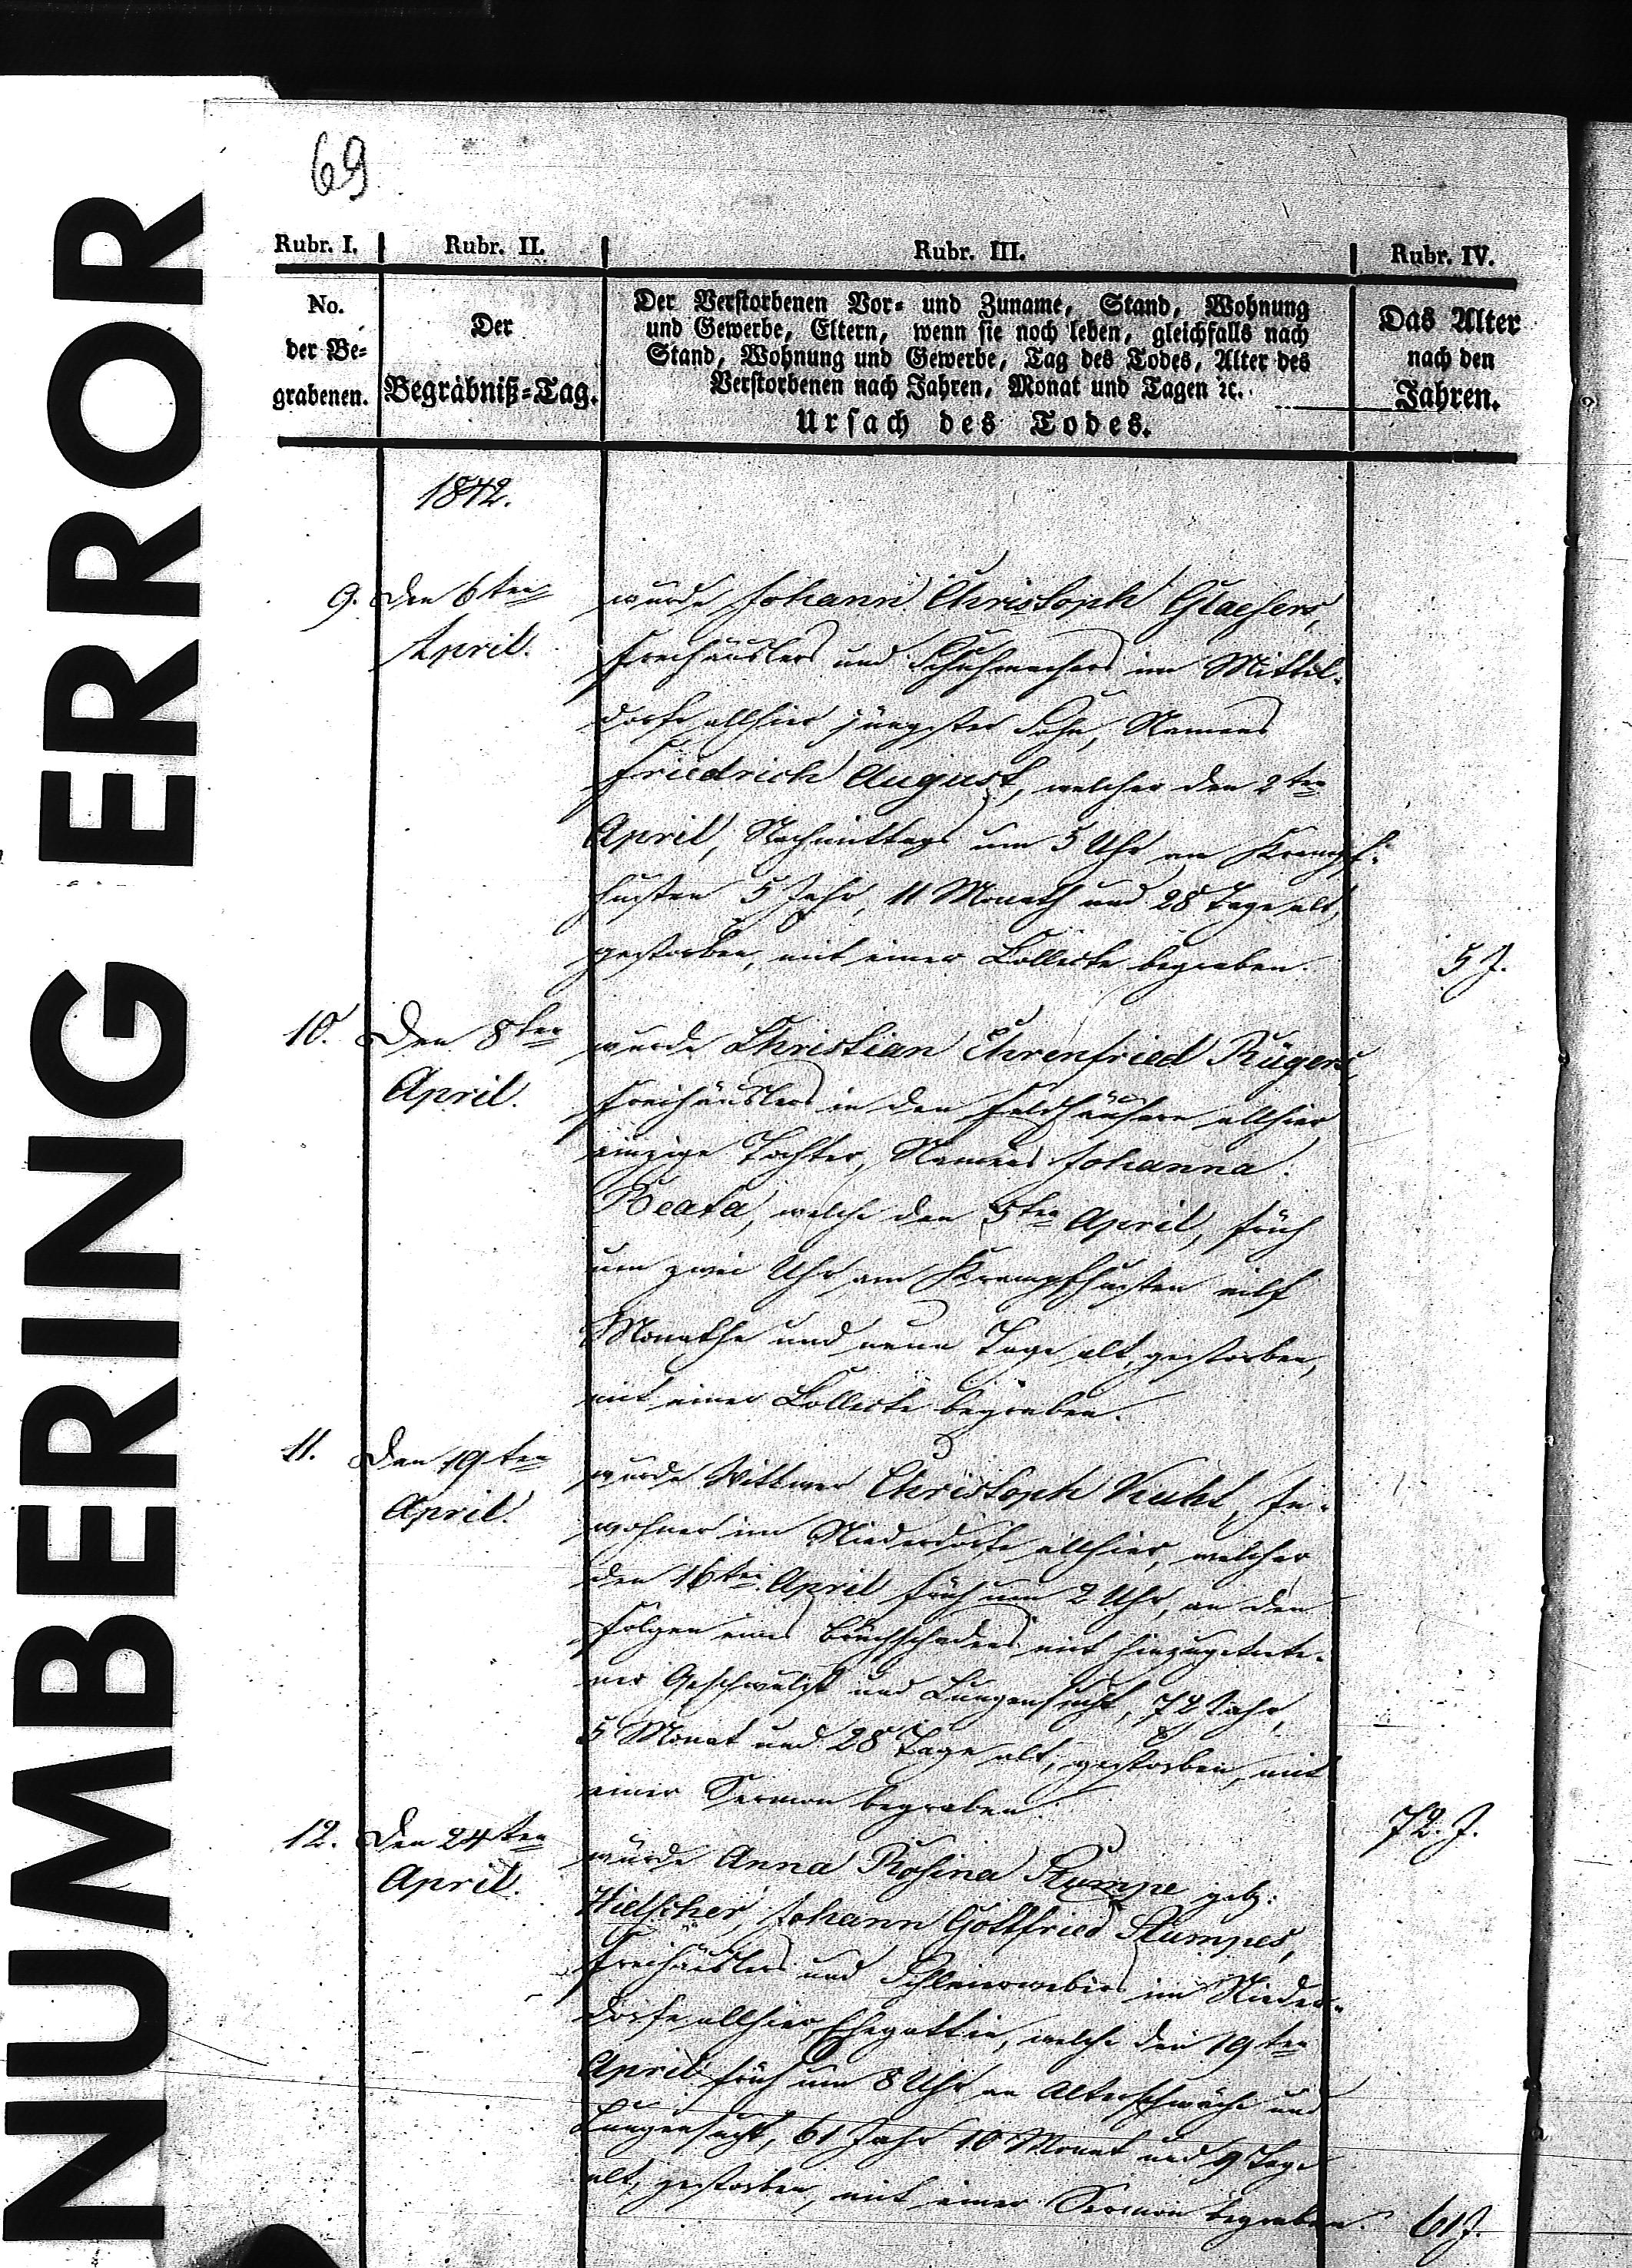 NUMBERING ERROR
69
Rubr. I. Rubr. II. Rubr. III. Rubr. IV.
No.
der Be=
grabenen.
Der
Begräbniß=Tag.
Der Verstorbenen Vor= und Zuname, Stand, Wohnung
und Gewerbe, Eltern, wenn sie noch leben, gleichfalls nach
Stand, Wohnung und Gewerbe, Tag des Todes, Alter des
Verstorbenen nach Jahren, Monat und Tagen ꝛc.
Ursach des Todes.
Das Alter
nach den
Jahren.
1842.
9. Den 6ten
April.
wurde Johann Christoph Glaesers,
Freihäuslers und Schuhmachers im Mittel-
dorfe allhier jüngster Sohn, Namens
Friedrich August, welcher den 2ten
April, Nachmittags um 5 Uhr am Krampf-
husten 5 Jahr, 11 Monath und 28 Tage alt,
gestorben, mit einer Collecte begraben.
5 J.
10. Den 8ten
April.
wurde Christian Ehrenfried Rügers,
Freihäuslers in den Feldhäusern allhier
einzige Tochter, Namens Johanna
Beata, welche den 5ten April, früh
um zwei Uhr am Krampfhusten eilf
Monathe und neun Tage alt, gestorben,
mit einer Collecte begraben.
11. Den 19ten
April.
wurde Wittwer Christoph, In-
wohner im Niederdorfe allhier, welcher
den 16ten April früh um 2 Uhr, an den
Folgen eines Bruchschadens mit hinzugetrete-
ner Geschwulst und Lungensucht, 72 Jahr,
5 Monat und 28 Tage alt, gestorben, mit
einer Sermon begraben.
72. J.
12. Den 24ten
April.
wurde Anna Rosina Stumpe geb.
Hielscher, Johann Gottfried Stumpes,
Freihäuslers und Schleierwebers im Nieder-
dorfe allhier Ehegattin, welche den 19ten
April früh um 8 Uhr an Alterschwäche und
Lungensucht, 61 Jahr 10 Monat und 9 Tage
alt, gestorben, mit einer Sermon begraben.
61 J.